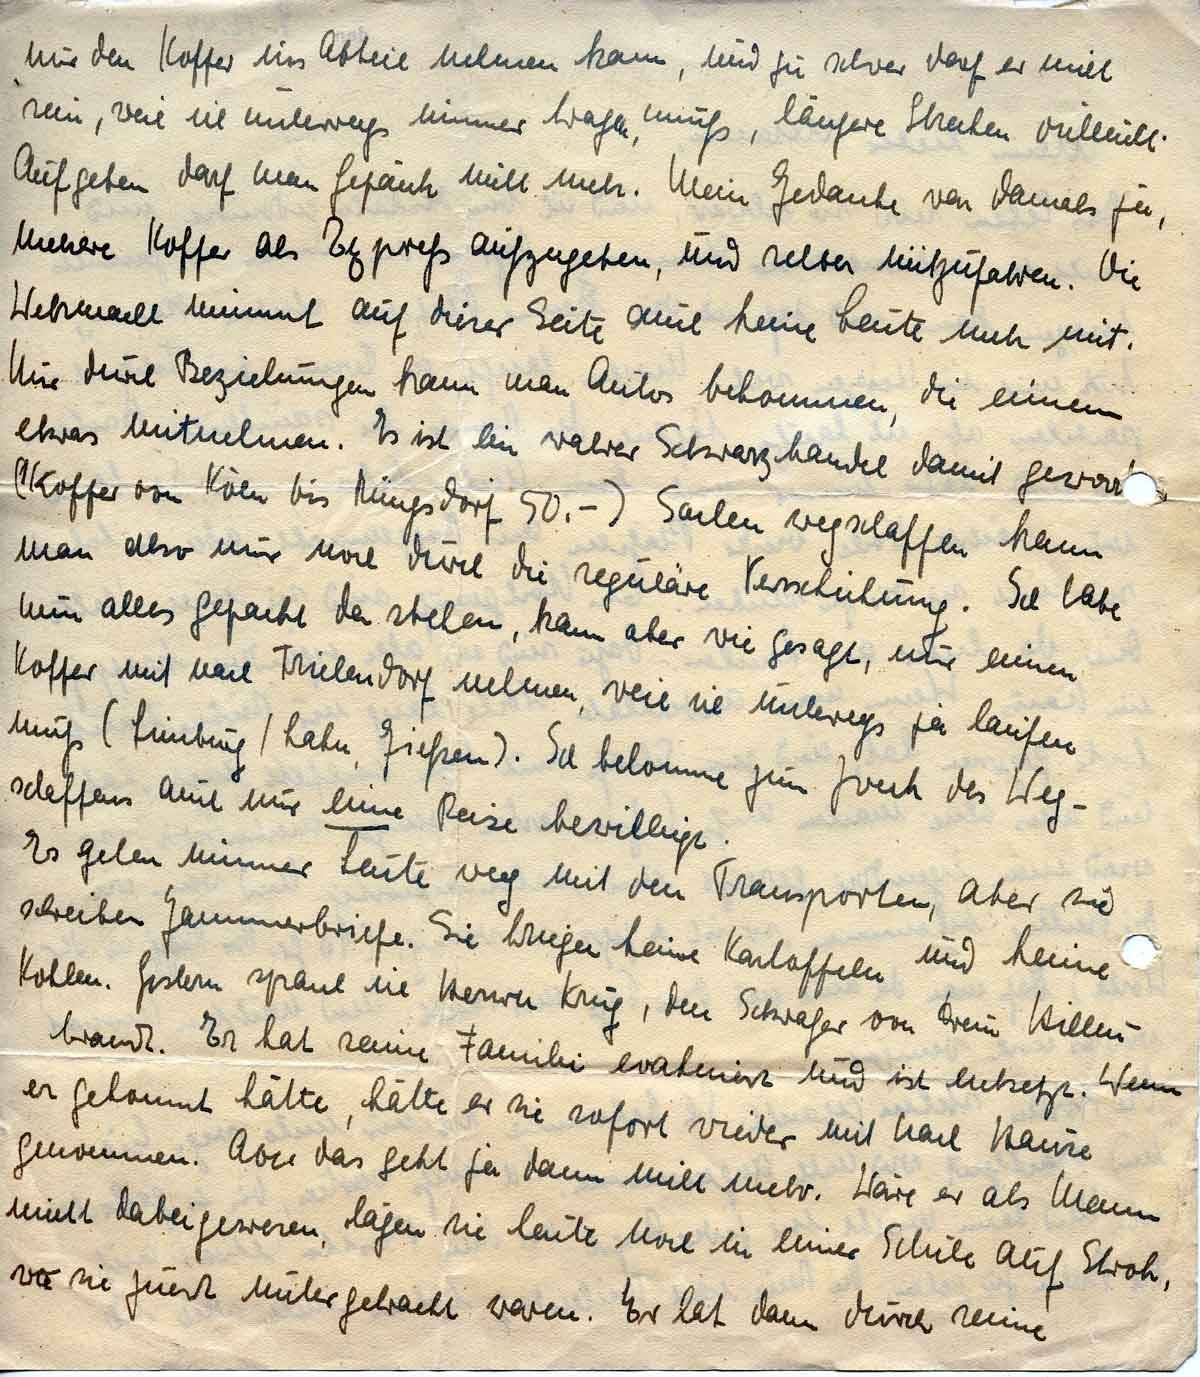 nur den Koffer ins Abteil nehmen kann, und zu schwer darf er nicht
sein, weil ich unterwegs immer tragen muß, längere Strecken vielleicht.
Aufgeben darf man Gepäck nicht mehr. Mein Gedanke war damals ja,
mehere Koffer als Expreß aufzugeben, und selber mitzufahren. Die
Wehrmacht nimmt auf dieser Seite auch keine Leute mehr mit.
Nur durch Beziehungen kann man Autos bekommen, die einem
etwas mitnehmen. Es ist ein wahrer Schwarzhandel damit geword
(1 Koffer von Köln bis Rüngsdorf 50.-) Sachen wegschaffen kann
man also nur noch durch die reguläre Verschickung. Ich habe
nun alles gepackt da stehen, kann aber wie gesagt, nur einen
Koffer mit nach Trielendorf nehmen, weil ich unterwegs ja laufen
muß (Limburg / Lahn, Gießen). Ich bekomme zum Zweck des Weg-
schaffens auch nur eine Reise bewilligt.
Es gehen immer Leute weg mit den Transporten, aber sie
schreiben Jammerbriefe. Sie kriegen keine Kartoffeln und keine
Kohlen. Gestern sprach ich Herrn Krug, den Schwager von Hillen-
brandt. Er hat seine Familie evakuiert und ist entsetzt. Wenn
er gekonnt hätte, hätte er sie sofort wieder mit nach Hause
genommen. Aber das geht ja dann nicht mehr. Wäre er als Mann
nicht dabeigewesen, lägen sie heute noch in einer Schule auf Stroh,
wo sie zuerst untergebracht waren. Er hat dann durch seine